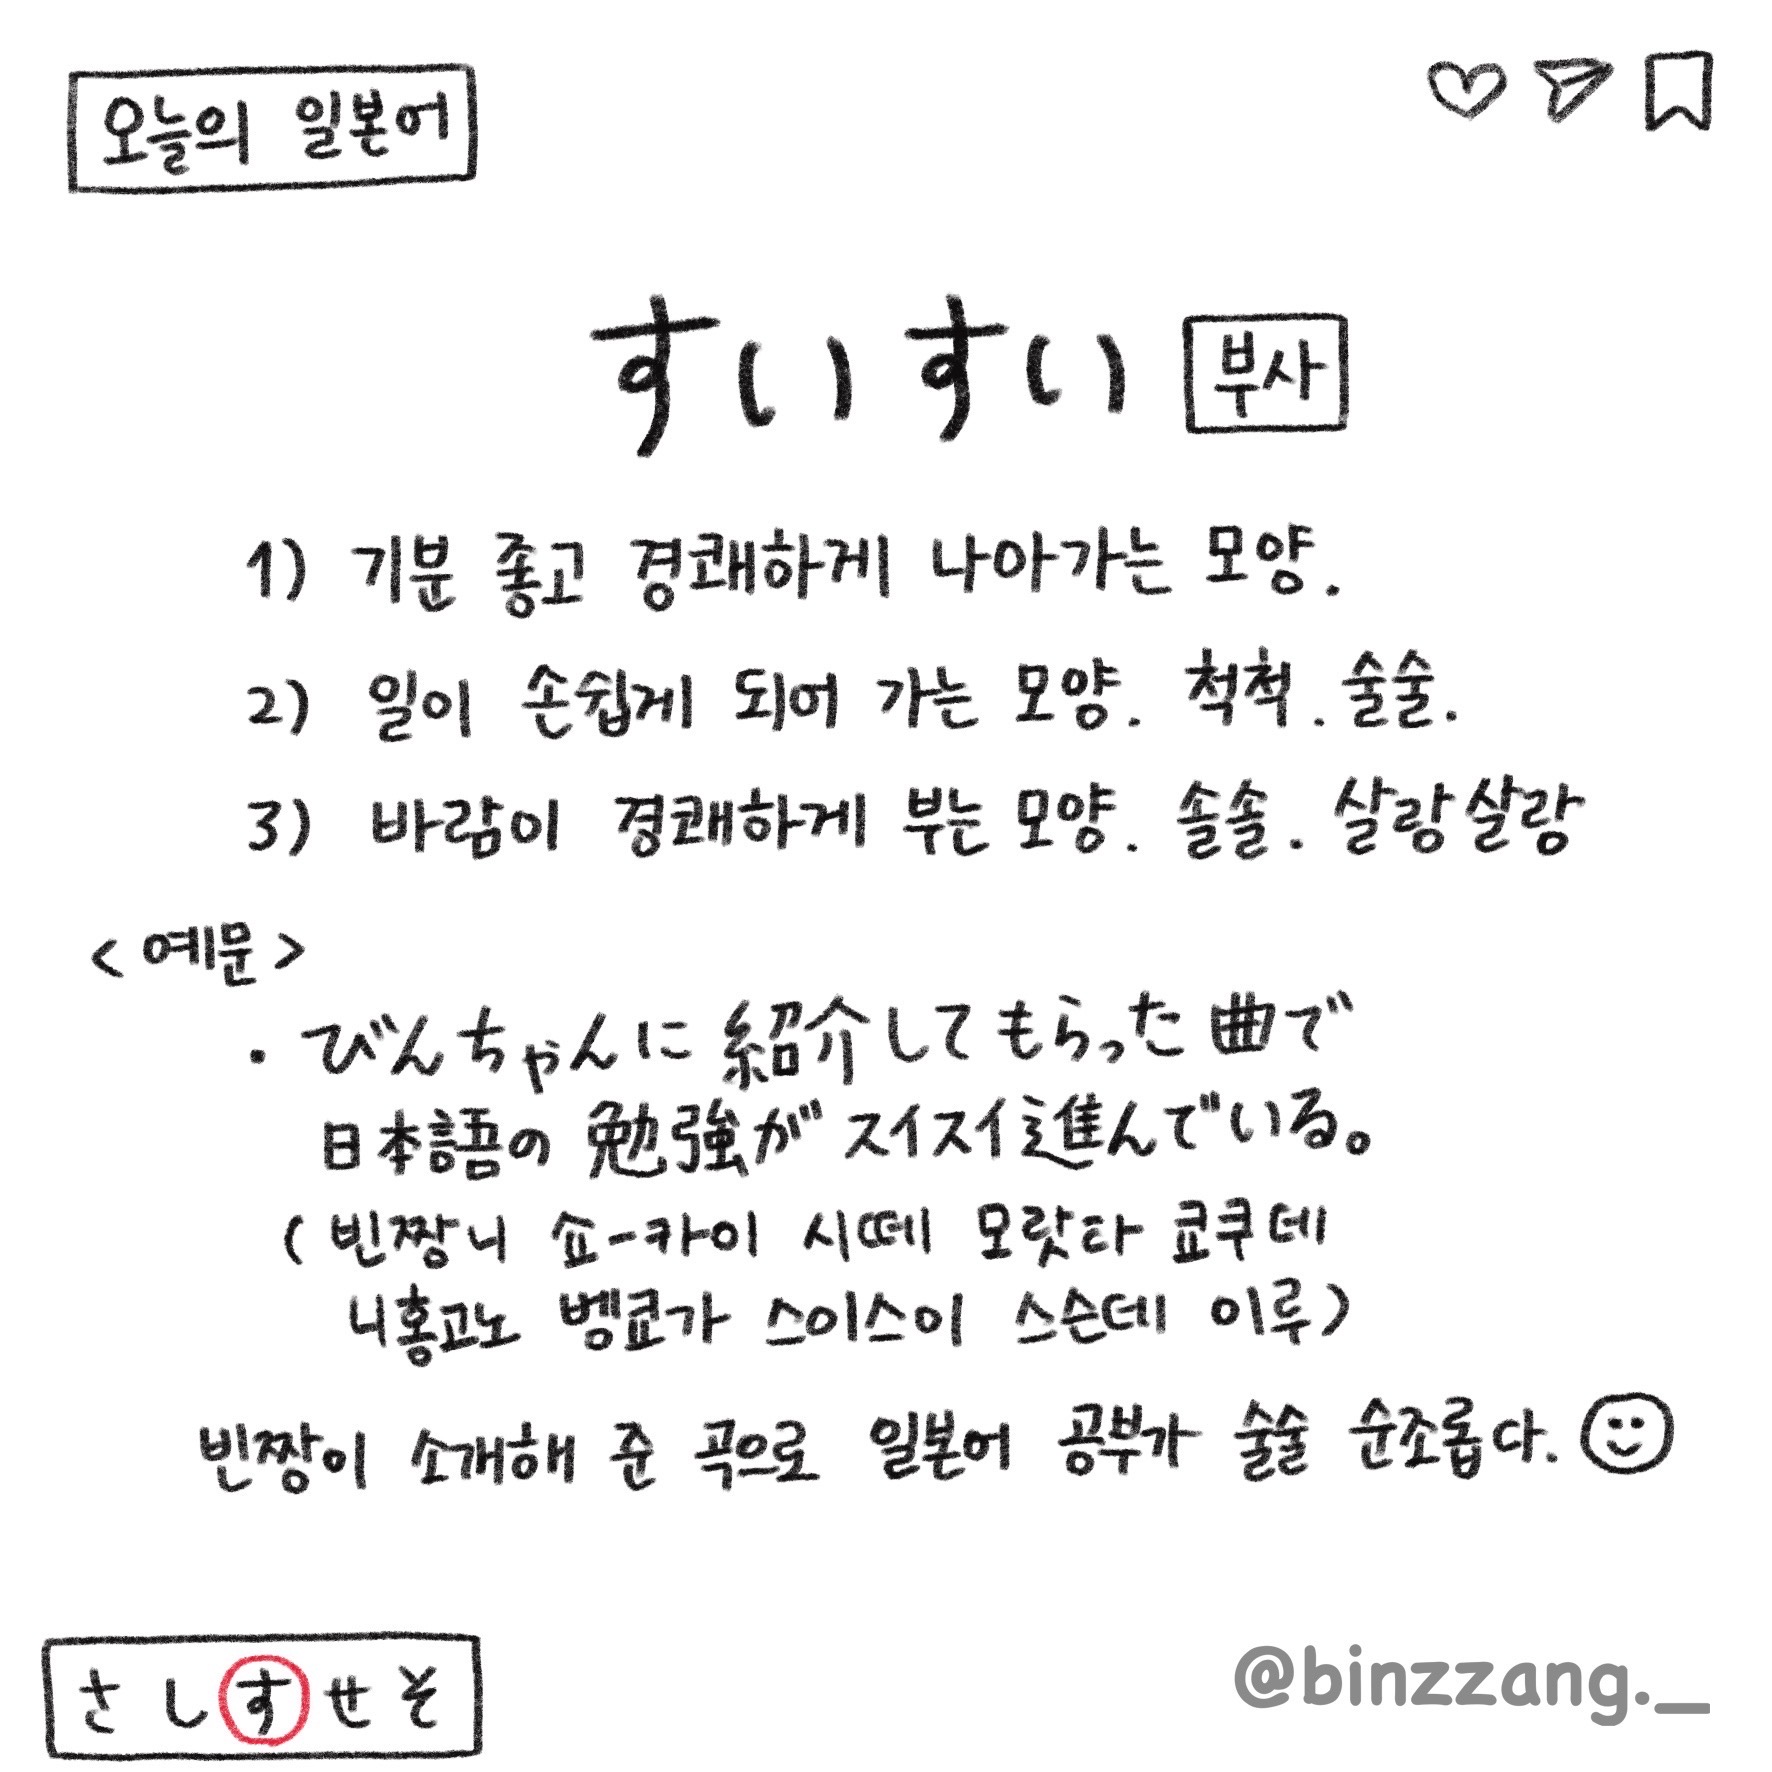 오늘의 일본어
すいすい 부사
1) 기분 좋고 경쾌하게 나아가는 모양.
2) 일이 손쉽게 되어 가는 모양. 척척. 술술.
3) 바람이 경쾌하게 부는 모양. 솔솔. 살랑살랑
<예문>
· びんちゃんに 紹介してもらった曲で
日本語の勉強がスイスイ進んでいる。
(빈짱니 쇼-카이 시떼 모랏타 쿄쿠데
니홍고노 벵쿄가 스이스이 스슨데 이루)
빈짱이 소개해 준 곡으로 일본어 공부가 술술 순조롭다.
さ し す せ そ
@binzzang._